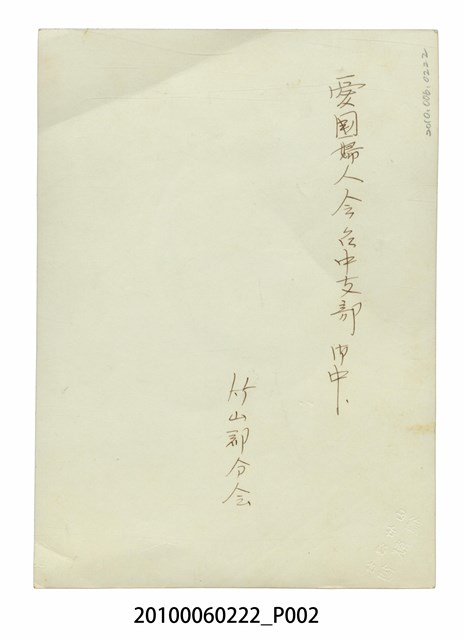 愛国婦人会台中支部 御中、
竹山郡分会
20100060222_P002